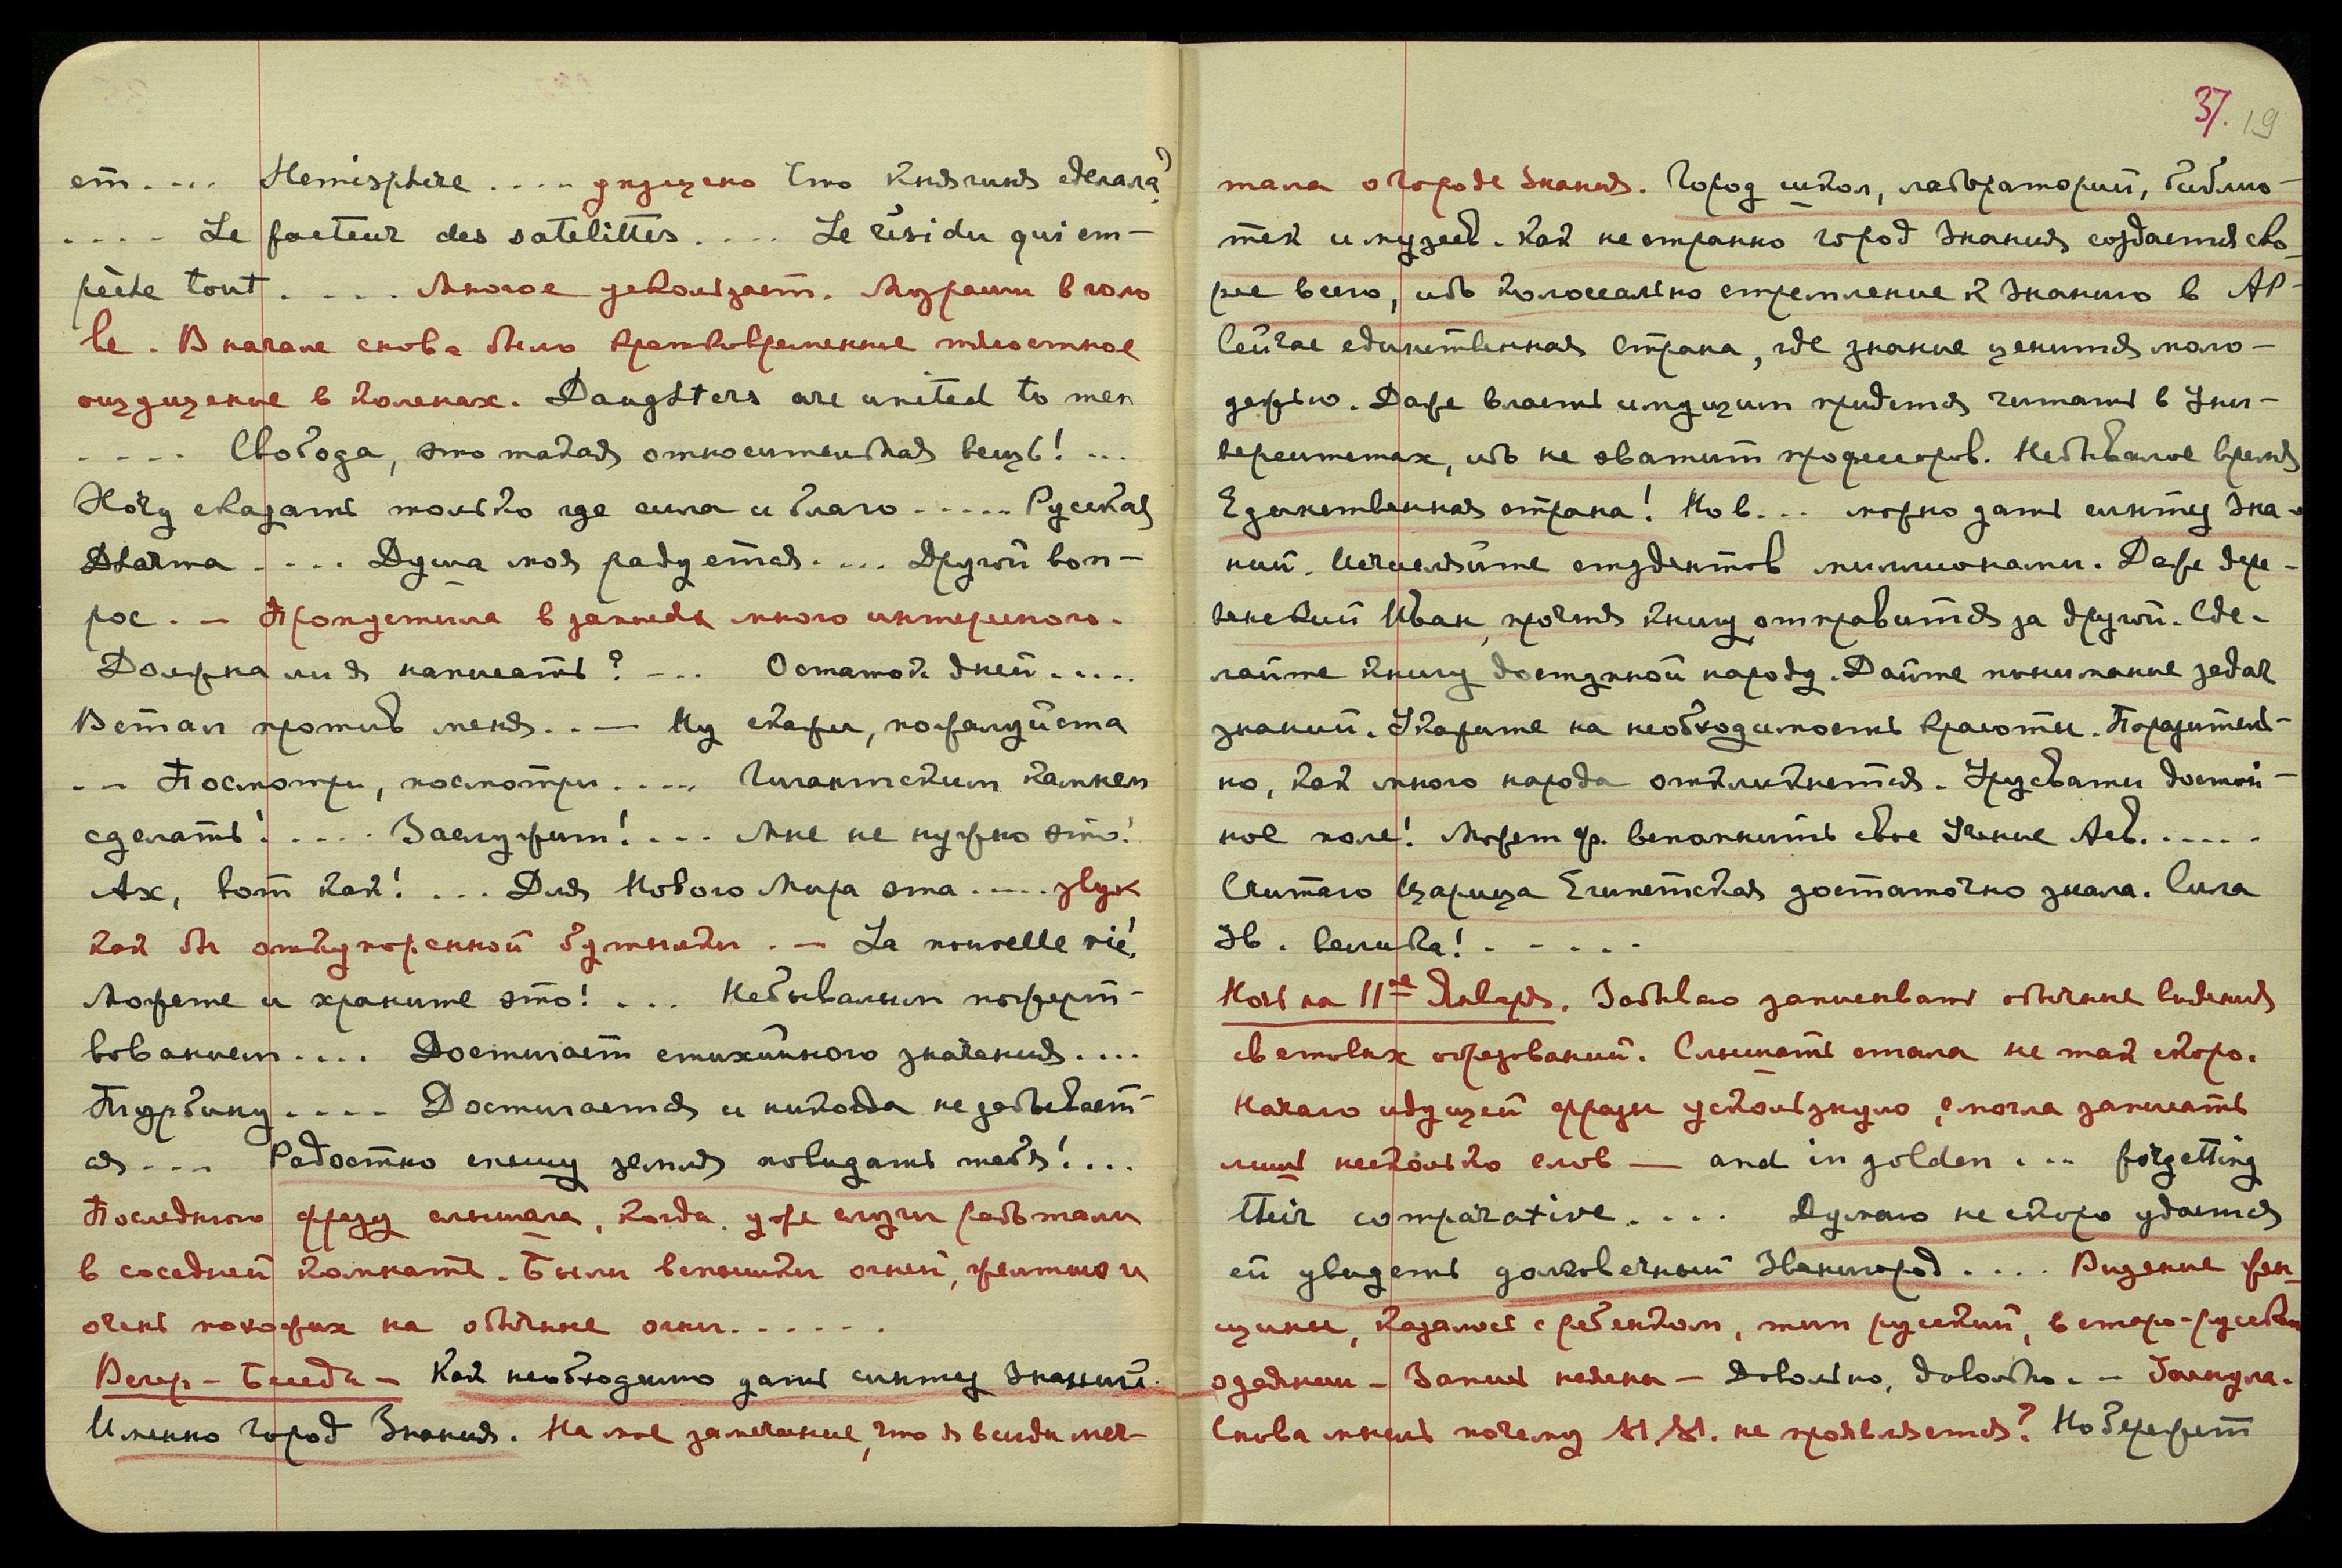 ет.... Hemisphere .... упущено Что княгиня сделала?
.... Le facteur des satelittes .... Le résidu qui em-
pèche tout .... Многое ускользает. Мураши в голо
ве. Вначале снова было кратковременное тягостное
ощущение в коленах. Daughters are united to men
.... Свобода, это такая относительная вещь! ...
Хочу сказать только где сила и благо ..... Русская
Dharma .... Душа моя радуется .... Другой воп-
рос. — Пропустила в записях много интересного.
Должна ли я написать? -.. Остаток дней .....
Встал против меня. . — Ну скажи, пожалуйста
-- Посмотри, посмотри ..... Гигантским камнем
сделать! ..... Заслужит! ... Мне не нужно это!
Ах, вот как! ... Для Нового Мира эта ..... звук
как бы откупоренной бутылки. — La nouvelle vie!
Можете и храните это! ... Небывалым пожерт-
вованием .... Достигает стихийного значения ....
Турбину .... Достигается и никогда не забывает-
ся .... Радостно спешу земля повидать тебя! ...
Последнюю фразу слышала, когда уже слуги работали
в соседней комнате. Были вспышки огней, желтые и
очень похожих на обычные огни ......
Вечер - Беседа - Как необходимо дать синтез Знаний.
Именно Город Знания. На мое замечание, что я всегда меч-
37. 19
тала о городе Знания. Город школ, лабораторий, библио-
тек и музеев. Как не странно город Знания создается ско-
рее всего, ибо колоссально стремление к Знанию в АР-
Сейчас единственная страна, где знание ценится моло-
дежью. Даже власть имущим придется читать в Уни-
верситетах, ибо не хватит профессоров. Небывалое время
Единственная страна! Но в... можно дать синтез Зна-
ний. Исчисляйте студентов миллионами. Даже дере-
венский Иван, прочтя книгу отправится за другой. Сде-
лайте книгу доступной народу. Дайте понимание задач
знаний. Укажите на необходимость красоты. Поразитель-
но, как много народа откликнется. Урусвати достой-
ное поле! Может ф. вспомнить свое Учение Асб......
Считаю Царица Египетская достаточно знала. Сила
Зв. велика! .....
Ночь на 11ое Января. Забываю записывать обычные видения
световых образований. Слышать стала не так скоро.
Начало идущей фразы ускользнуло, смогла записать
лишь несколько слов — and in golden ... forgetting
their comparative .... Думаю не скоро удастся
ей увидеть долговечный Звенигород .... Видение жен-
щины, казалось с ребенком, тип русский, в старо-русском
одеянии - Запись неясна - Довольно, довольно. - Заснула.
Снова мысль почему М. М. не проявляется? Но бережет